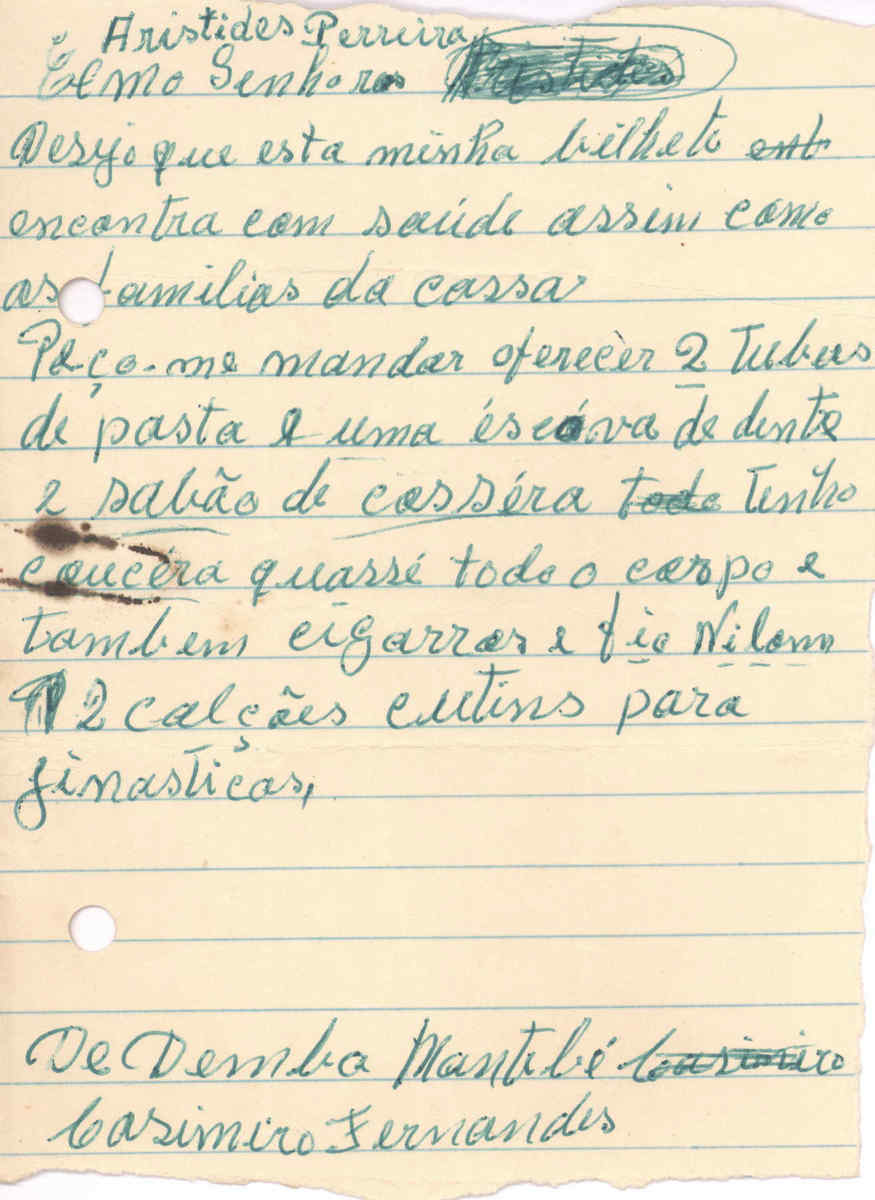 Aristides Perreira
Exmo Senhoras
Desejo que esta minha bilhete
encontra com saúde assim como
as familias da cassa
Peço-me mandar oferecèr 2 Tubus
de pasta e uma éscóva de dente
2 sabão de cosséra Tenho
coucéra quassé todo o corpo e
tambem cigarros e fio Nilom
2 calções cutins para
ginasticas,
De Demba Mantebé
Casimiro Fernandes